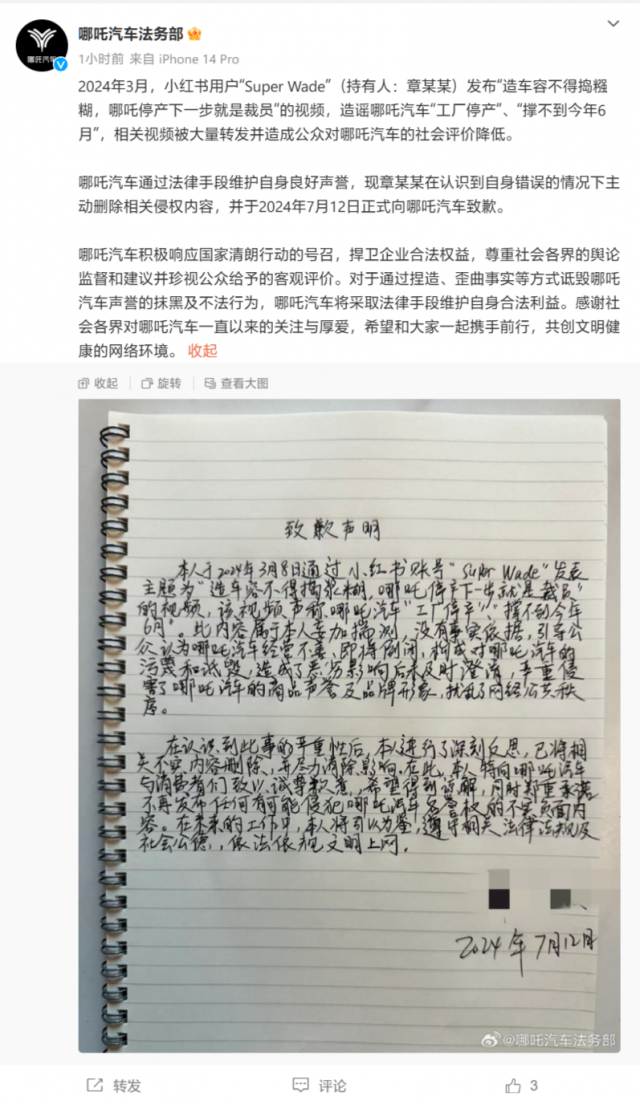 哪吒汽车法务部
1小时前 来自 iPhone 14 Pro
2024年3月，小红书用户“Super Wade”（持有人：章某某）发布“造车容不得捣糨
糊，哪吒停产下一步就是裁员”的视频，造谣哪吒汽车“工厂停产”、“撑不到今年6
月”，相关视频被大量转发并造成公众对哪吒汽车的社会评价降低。
哪吒汽车通过法律手段维护自身良好声誉，现章某某在认识到自身错误的情况下主
动删除相关侵权内容，并于2024年7月12日正式向哪吒汽车致歉。
哪吒汽车积极响应国家清朗行动的号召，捍卫企业合法权益，尊重社会各界的舆论
监督和建议并珍视公众给予的客观评价。对于通过捏造、歪曲事实等方式诋毁哪吒
汽车声誉的抹黑及不法行为，哪吒汽车将采取法律手段维护自身合法利益。感谢
社会各界对哪吒汽车一直以来的关注与厚爱，希望和大家一起携手前行，共创文明健
康的网络环境。 收起
收起 旋转 查看大图
致歉声明
本人于2024年3月8日通过小红书账号“Super Wade”发表
主题为“造车容不得捣浆糊，哪吒停产下一步就是裁员”
的视频，该视频声称哪吒汽车“工厂停产”、“撑不到今年
6月”。此内容属于本人妄加揣测，没有事实依据，引导公
众认为哪吒汽车经营不善、即将倒闭，构成对哪吒汽车的
污蔑和诋毁，造成了恶劣影响后未及时澄清，严重侵
害了哪吒汽车的商品声誉及品牌形象，扰乱了网络公共秩
序。
在认识到此事的严重性后，本人进行了深刻反思，已将相
关不实内容删除，并尽力消除影响。在此，本人特向哪吒汽车
与消费者们致以诚挚歉意，希望得到谅解，同时郑重承诺
不再发布任何有可能侵犯哪吒汽车名誉权的不实负面内
容。在未来的工作中，本人将引以为鉴，遵守相关法律法规及
社会公德，依法依规文明上网。
2024年7月12日
@哪吒汽车法务部
转发 评论 3